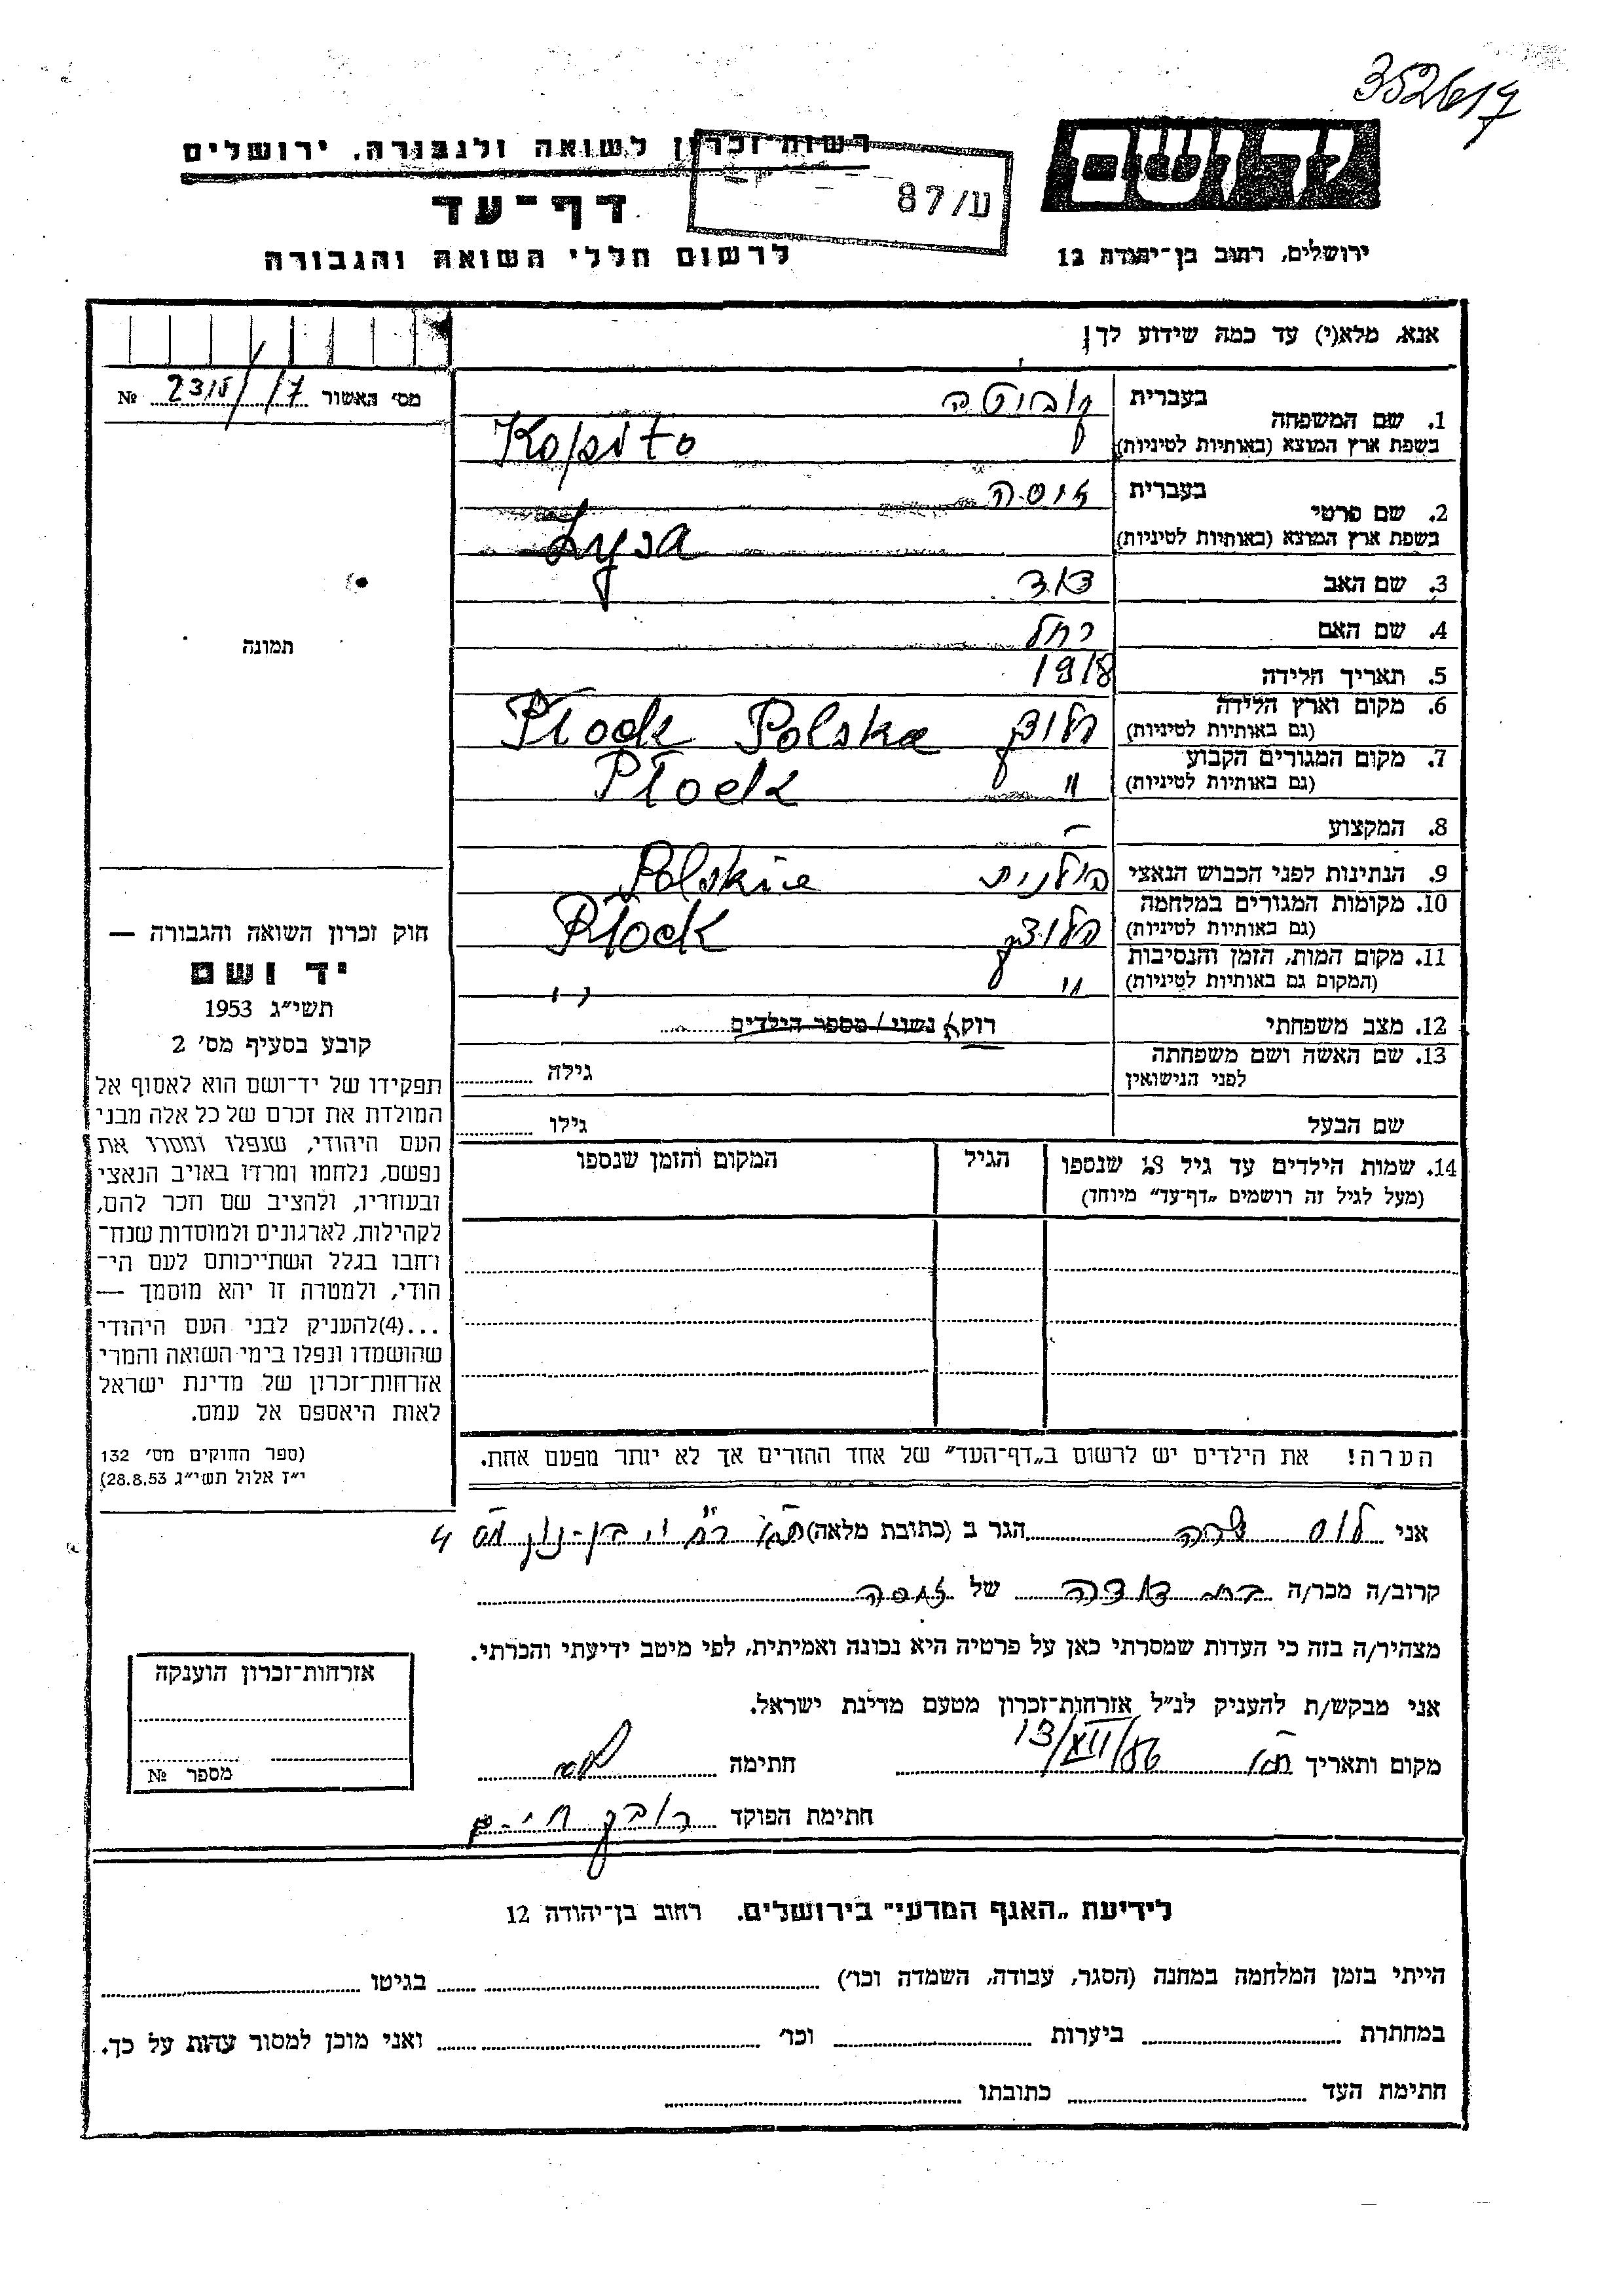 352617
רשות־זכרון לשואה ולגבורה, ירושלים
יד ושם
דף־עד
ע/87
לרשום חללי השואה והגבורה
ירושלים, רחוב בן־יהודה 12
אנא, מלא(י) עד כמה שידוע לך!
מס' האשור № 2315/17
1. שם המשפחה
בעברית
בשפת ארץ המוצא (באותיות לטיניות)
Kopito
2. שם פרטי
בעברית
בשפת ארץ המוצא (באותיות לטיניות)
3. שם האב דוד
4. שם האם רחל
5. תאריך הלידה 1918
6. מקום וארץ הלידה
(גם באותיות לטיניות)
פלוצק Płock Polska
7. מקום המגורים הקבוע
(גם באותיות לטיניות)
" Płock
8. המקצוע —
9. הנתינות לפני הכבוש הנאצי פולנית
10. מקומות המגורים במלחמה
(גם באותיות לטיניות)
פלוצק Płock
11. מקום המות, הזמן והנסיבות
(המקום גם באותיות לטיניות)
" "
12. מצב משפחתי רווק/ נשוי / מספר הילדים
13. שם האשה ושם משפחתה
לפני הנישואין
גילה
שם הבעל גילו
14. שמות הילדים עד גיל 18 שנספו
(מעל לגיל זה רושמים „דף־עד" מיוחד)
הגיל
המקום והזמן שנספו
תמונה
חוק זכרון השואה והגבורה —
יד ושם
תשי"ג 1953
קובע בסעיף מס' 2
תפקידו של יד־ושם הוא לאסוף אל
המולדת את זכרם של כל אלה מבני
העם היהודי, שנפלו ומסרו את
נפשם, נלחמו ומרדו באויב הנאצי
ובעוזריו, ולהציב שם וזכר להם,
לקהילות, לארגונים ולמוסדות שנח־
רחבו בגלל השתייכותם לעם הי־
הודי, ולמטרה זו יהא מוסמך —
...(4)להעניק לבני העם היהודי
שהושמדו ונפלו בימי השואה והמרי
אזרחות־זכרון של מדינת ישראל
לאות היאספם אל עמם.
(ספר החוקים מס' 132
י"ז אלול תשי"ג 28.8.53)
הערה! את הילדים יש לרשום ב„דף־העד" של אחד ההורים אך לא יותר מפעם אחת.
אני לוס שרה הגר ב (כתובת מלאה) בן־נון 4
קרוב/ה מכר/ה בת דודה של
מצהיר/ה בזה כי העדות שמסרתי כאן על פרטיה היא נכונה ואמיתית, לפי מיטב ידיעתי והכרתי.
אני מבקש/ת להעניק לנ"ל אזרחות־זכרון מטעם מדינת ישראל.
מקום ותאריך 13/XII/86 חתימה
חתימת הפוקד
אזרחות־זכרון הוענקה
מספר №
לידיעת „האגף המדעי" בירושלים. רחוב בן־יהודה 12
הייתי בזמן המלחמה במחנה (הסגר, עבודה, השמדה וכו') בגיטו
במחתרת ביערות וכו' ואני מוכן למסור עדות על כך.
חתימת העד כתובתו